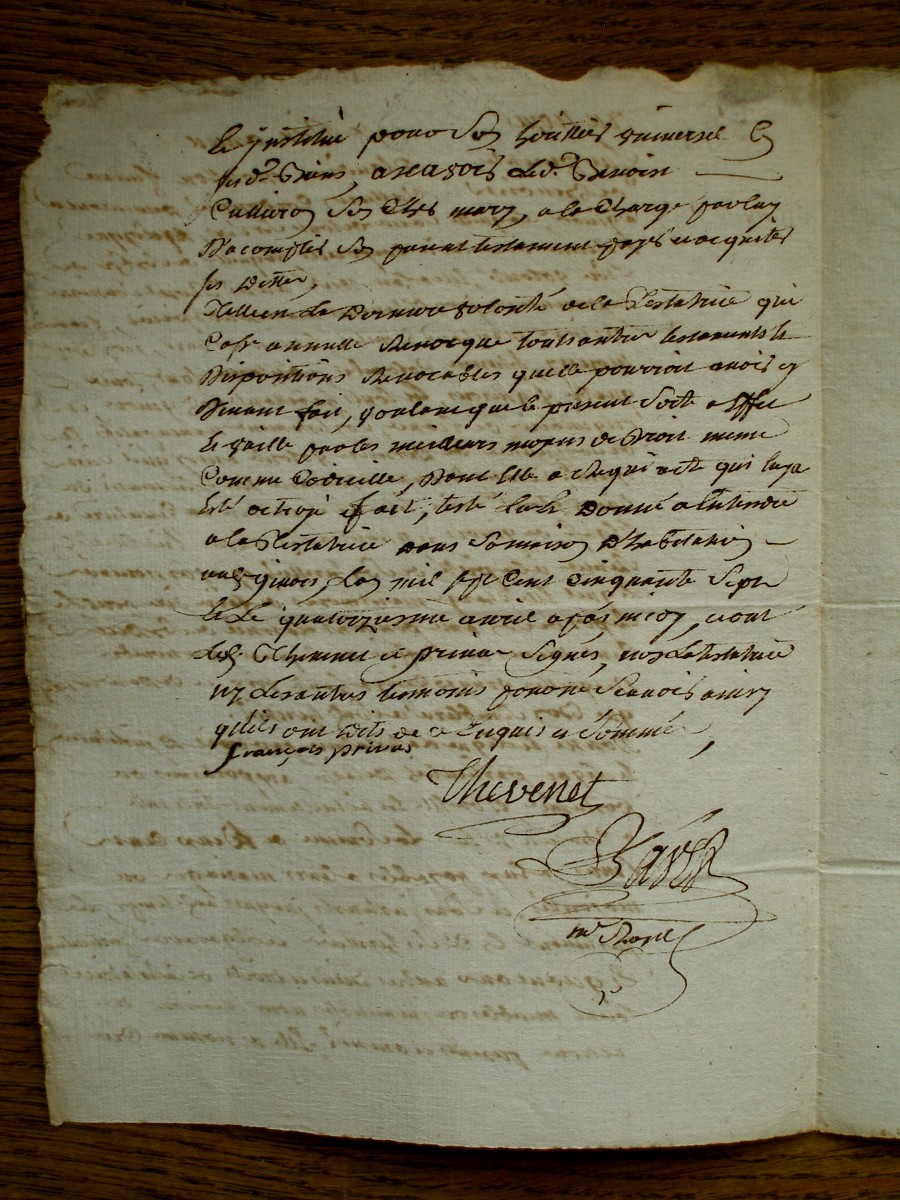 et institué pour son heritier universel en
sesd. biens, a scavoir led. Benoist
Cullieron son cher mary, a la charge par luy
d'acomplir son present testament payer et acquiter
ses dettes,
Telle est la derniere volonté de la Testatrice qui
casse annulle revocque touts autres testaments et
dispositions revocables quelle pourroit avoir cy
devant fait, voulant que le present sorte a effet
et vaille par les meilleurs moyens de droit meme
comme codicille, dont elle a requi acte qui luy a
esté octroyé fait, testé lu et donné a entendre
a la Testatrice dans sa maison d'habitation
l'an mil sept cent cinquante sept
et le quatorzieme avril apres midy, et ont
led. Thevenet et privas signés, non la testatrice
ny les autres temoins pour ne scavoir ainsy
qu'ils ont dits de ce enquis et sommés,
françois privas
Thevenet
nre Royal